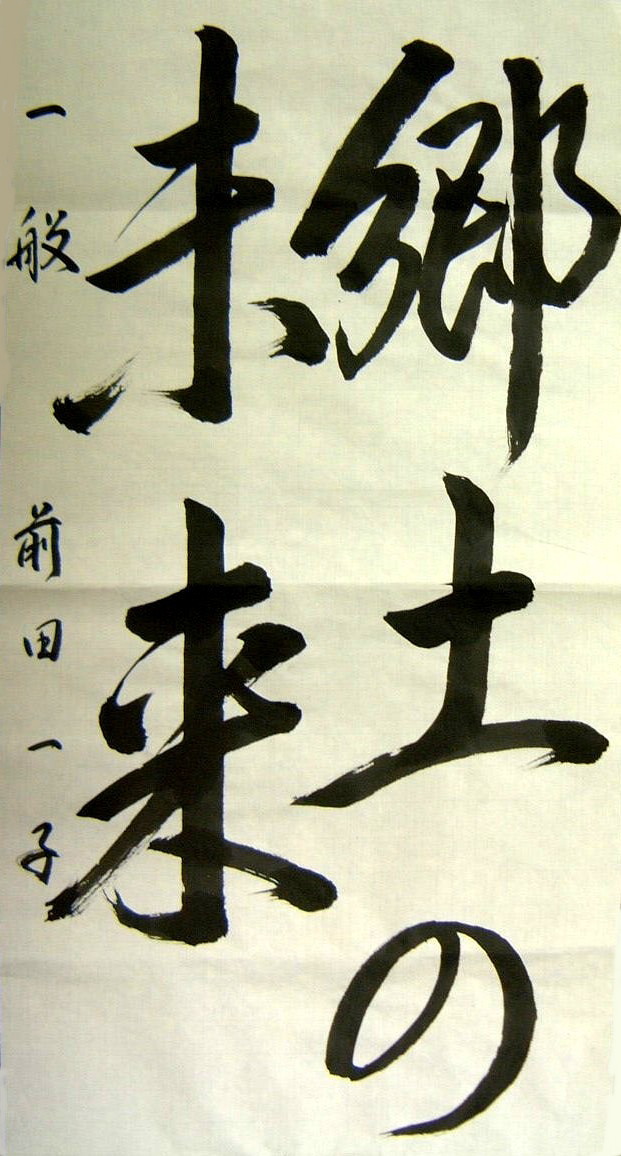 郷土の
未来
一般 前田一子